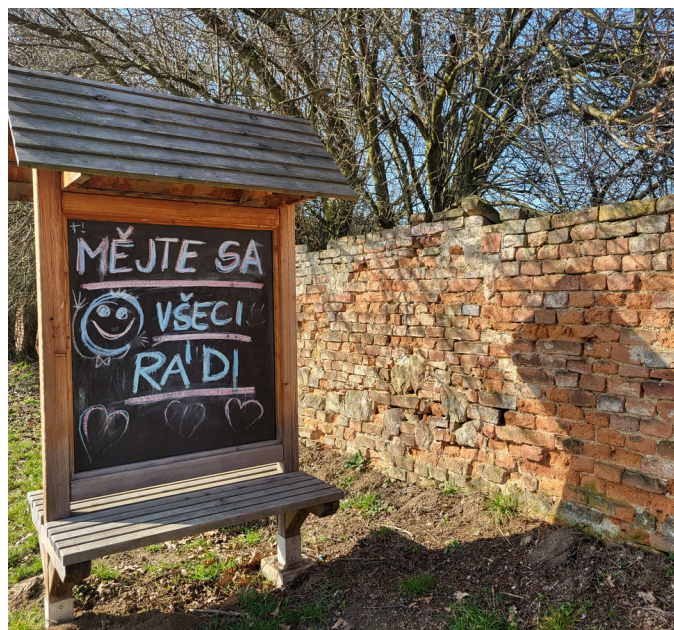 MĚJTE SA
VŠECI
RÁDI